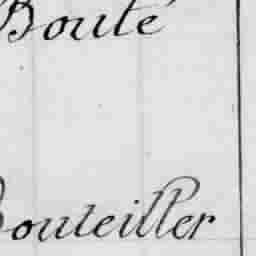 Bouté
Bouteiller